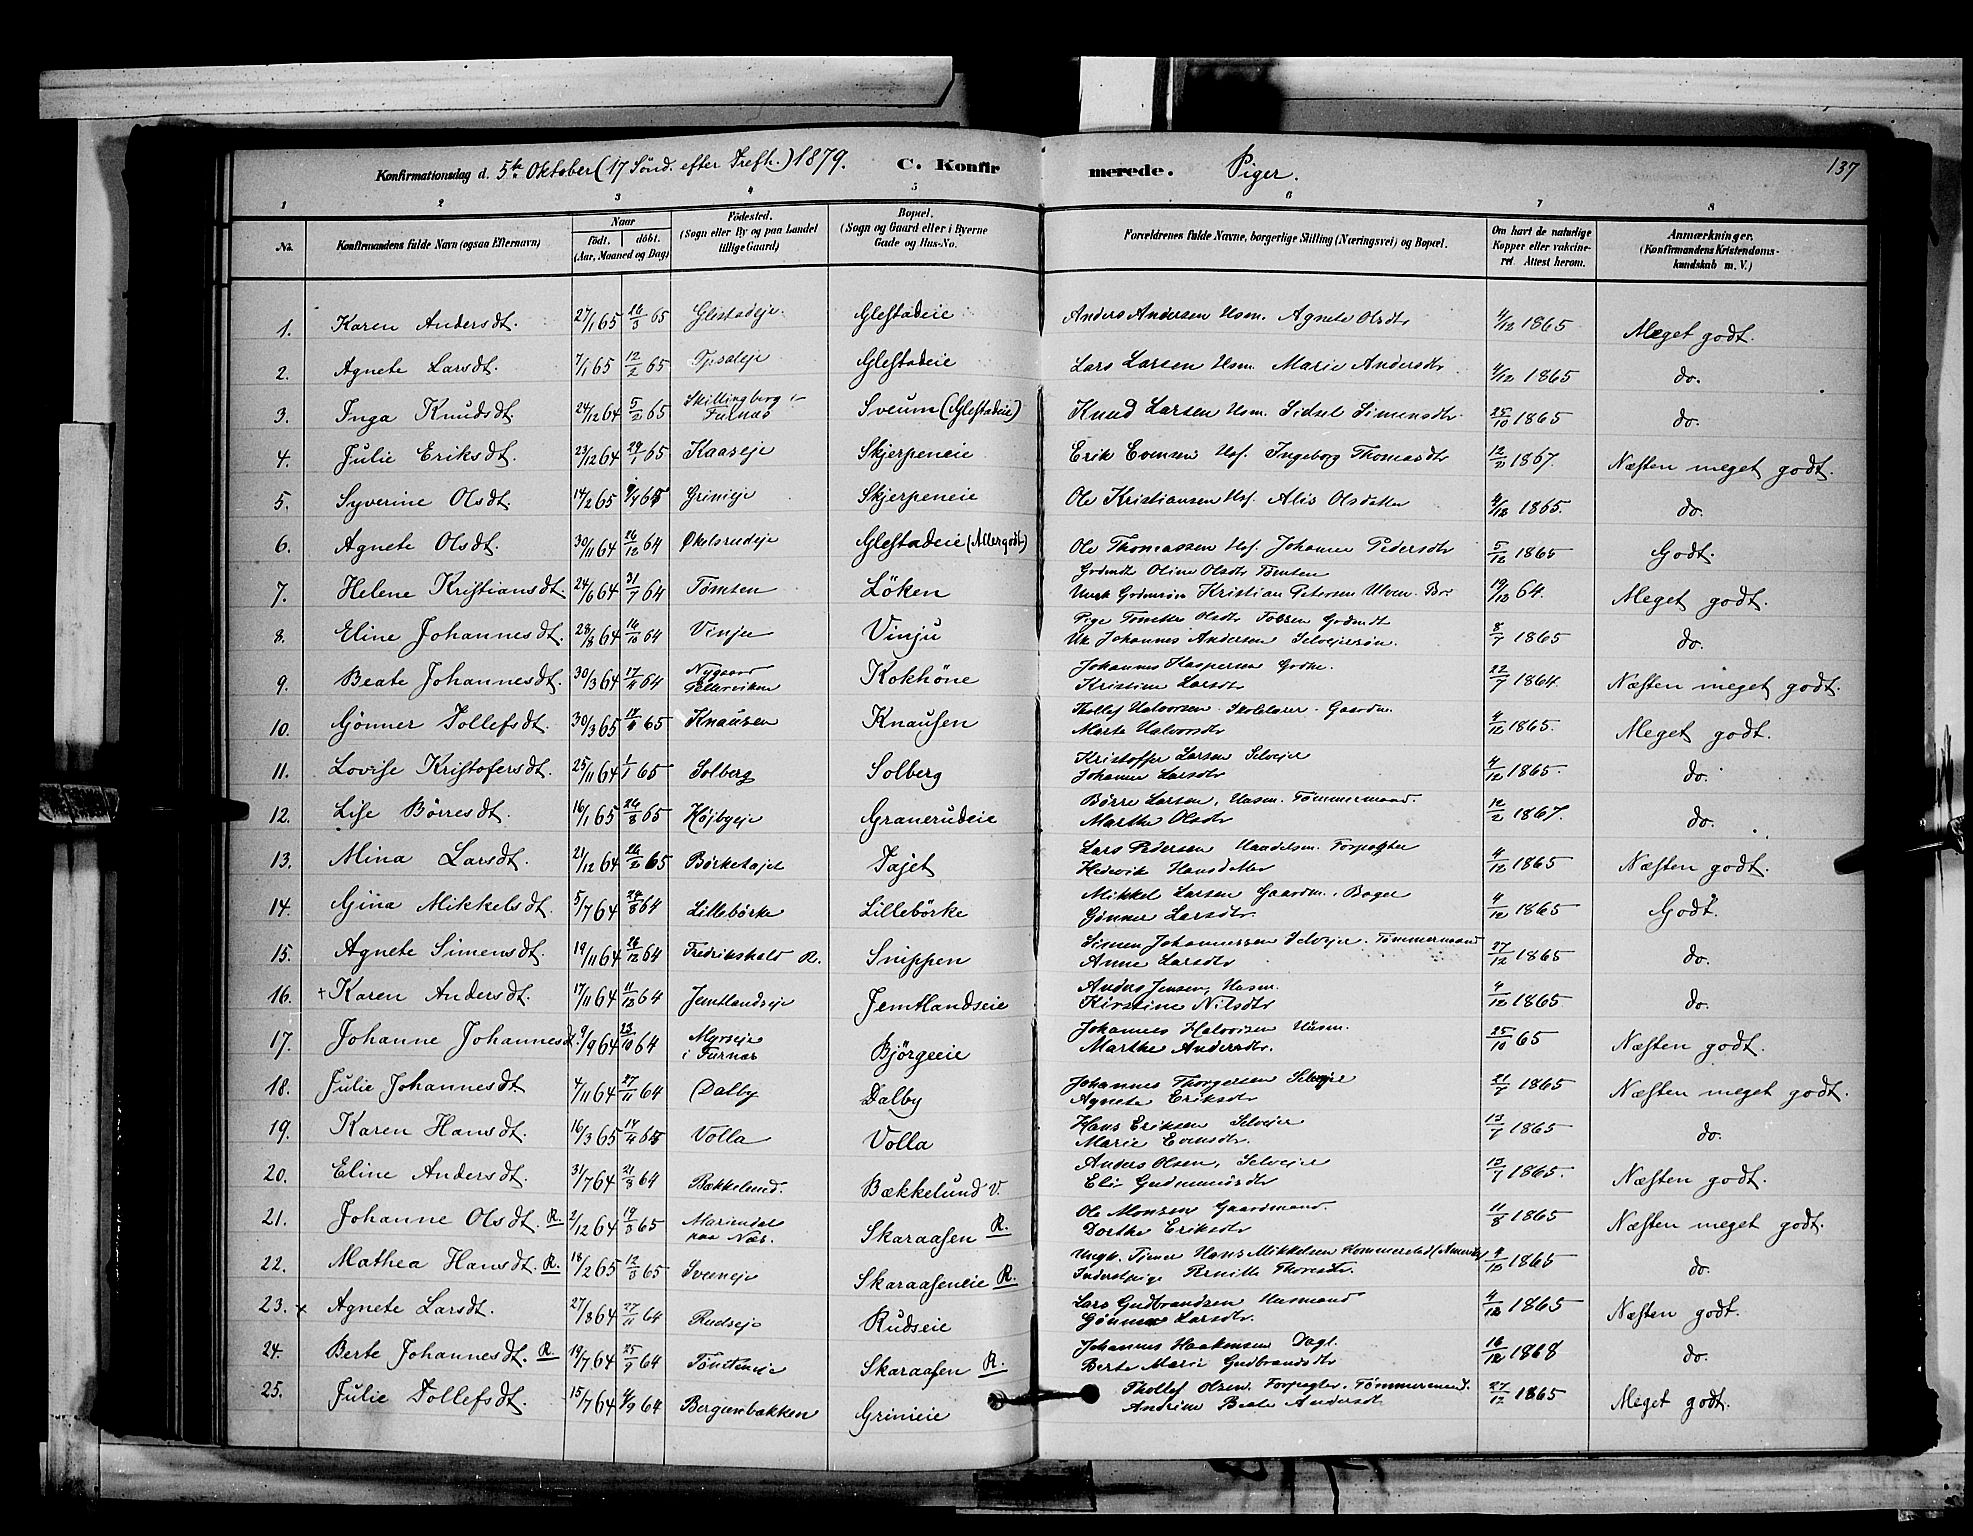 Konfirmationsdag d. 5te Oktober (17 Sönd. efter Trefh.) 1879. C. Konfirmerede. Piger. 137
1 2 3 4 5 6 7 8
No. Konfirmandens fulde Navn (ogsaa Efternavn) Naar födt. döbt. (Aar, Maaned og Dag) Födested. (Sogn eller By og paa Landet tillige Gaard) Bopæl. (Sogn og Gaard eller i Byerne Gade og Hus-No. Forældrenes fulde Navne, borgerlige Stilling (Næringsvei) og Bopæl. Om havt de naturlige Kopper eller vakcineret. Attest herom. Anmærkninger. (Konfirmandens Kristendomskundskab m. V.)
1. Karen Andersdt. 27/1 65 26/3 65 Glestadeje Glestadeie Anders Andersen Husm. Agnete Olsdtr 4/12 1865 Meget godt.
2. Agnete Larsdt. 7/1 65 12/2 65 Glestadeie Lars Larsen Husm. Marie Andersdtr 4/12 1865 do.
3. Inga Knudsdt. 24/12 64 5/2 65 Skillingberg i Furnæs Sveum (Glestadeie) Knud Larsen Husm. Sidsel Simensdtr 25/10 1865 do.
4. Julie Eriksdt. 23/12 64 29/1 65 Kaaseje Skjerpeneie Erik Evensen Husf. Ingeborg Thomasdtr 12/2 1867. Næsten meget godt.
5. Syverine Olsdt. 14/2 65 9/4 65 Grinieje Skjerpeneie Ole Kristiansen Husf. Alis Olsdatter 4/12 1865. do.
6. Agnete Olsdt. 30/11 64 26/12 64 Økelsrudeje Glestadeie (Allergodt) Ole Thomassen Husf. Johanne Pedersdtr 5/12 1865 Godt.
7. Helene Kristiansdt. 24/6 64 31/7 64 Tømten Löken Grdmdtr Oline Olsdtr Tømten Ungk. Grdmsøn Kristian Petersen Ulven 19/12 64. Meget godt.
8. Eline Johannesdt. 28/8 64 16/10 64 Vinju Vinju Pige Olsdtr Grdmdtr Uk. Johannes Andersen Selvejersøn. 8/7 1865 do.
9. Beate Johannesdt. 30/3 64 17/4 64 Nygaard Kokhöne Johannes Kaspersen Kristine Larsdtr 22/7 1864. Næsten meget godt.
10. Gönner Tollefsdt. 30/3 65 65 Knausen Knausen Thollef Halvorsen Skolelærer. Gaardm. Marte Halvorsdtr 4/12 1865. Meget godt.
11. Lovise Kristofersdt. 25/11 64 1/1 65 Solberg Solberg Kristoffer Larsen Selvejer Johanne Larsdtr 4/12 1865. do.
12. Lise Börresdt. 16/1 65 26/3 65 Højbyeje Granerudeie Børre Larsen, Husm. Tømmermand. Marthe Olsdtr 12/2 1867. do.
13. Mina Larsdt. 21/12 64 26/2 65 Børketajet Tajet Lars Pedersen Handelsm. Forpagter Hedevik Hansdatter 4/12 1865 Næsten godt.
14. Gina Mikkelsdt. 5/7 64 24/8 64 Lillebörke Lillebörke Mikkel Larsen Gaardm. Bager Gønner Larsdtr 4/12 1865 Godt.
15. Agnete Simensdt. 19/11 64 26/12 64 Fredrikshald R. Snippen Simen Johannessen Selvejer. Tømmermand Anne Larsdtr 27/12 1865 do.
16. + Karen Andersdt. 17/11 64 11/12 64 Jemtlandseje Jemtlandseie Anders Jensen, Husm. Kirstine Nilsdtr 4/12 1865 do.
17. Johanne Johannesdt. 9/9 64 23/10 64 Myrseje i Furnæs Björgeeie Johannes Halvorsen Husm. Marthe Andersdtr. 25/10 65 Næsten godt.
18. Julie Johannesdt. 4/11 64 27/11 64 Dalby Dalby Johannes Thorgersen Selvejer Agnete Eriksdtr 21/7 1865 Næsten meget godt.
19. Karen Hansdt. 16/3 65 17/4 65 Volla Volla Hans Eriksen Selvejer Marie Evensdtr. 13/7 1865 do.
20. Eline Andersdt. 31/7 64 21/8 64 Bækkelund. Bækkelund V. Anders Olsen, Selvejer Eli Gudmundsdtr 13/7 1865. Næsten godt.
21. Johanne Olsdt. R. 2/12 64 19/3 65 Mariendal paa Næs. Skaraasen R. Ole Monsen Gaardmand. Dorthe Eriksdtr 11/8 1865 Næsten meget godt.
22. Mathea Hansdt. R. 18/2 65 12/3 65 Sveneje Skaraaseneie R. Ungk. Tjener Hans Mikkelsen Hommerstad (Amerika) Inderstpige Pernille Thoresdtr. 4/12 1865 do.
23. x Agnete Larsdt. 27/8 64 27/11 64 Rudseje Rudseie Lars Gudbrandsen Husmand Gønner Larsdtr 4/12 1865 Næsten godt.
24. Berte Johannesdt. R. 19/7 64 25/9 64 Tømteneje Skaraasen R. Johannes Haakensen Dagl. Berte Marie Gudbrandsdtr 16/12 1868 do.
25. Julie Tollefsdt. 15/7 64 4/9 64 Bergerbakken Grinieie Thollef Olsen. Forpagter. Tømmermand. Andrine Beate Andersdtr 27/12 1865 Meget godt.